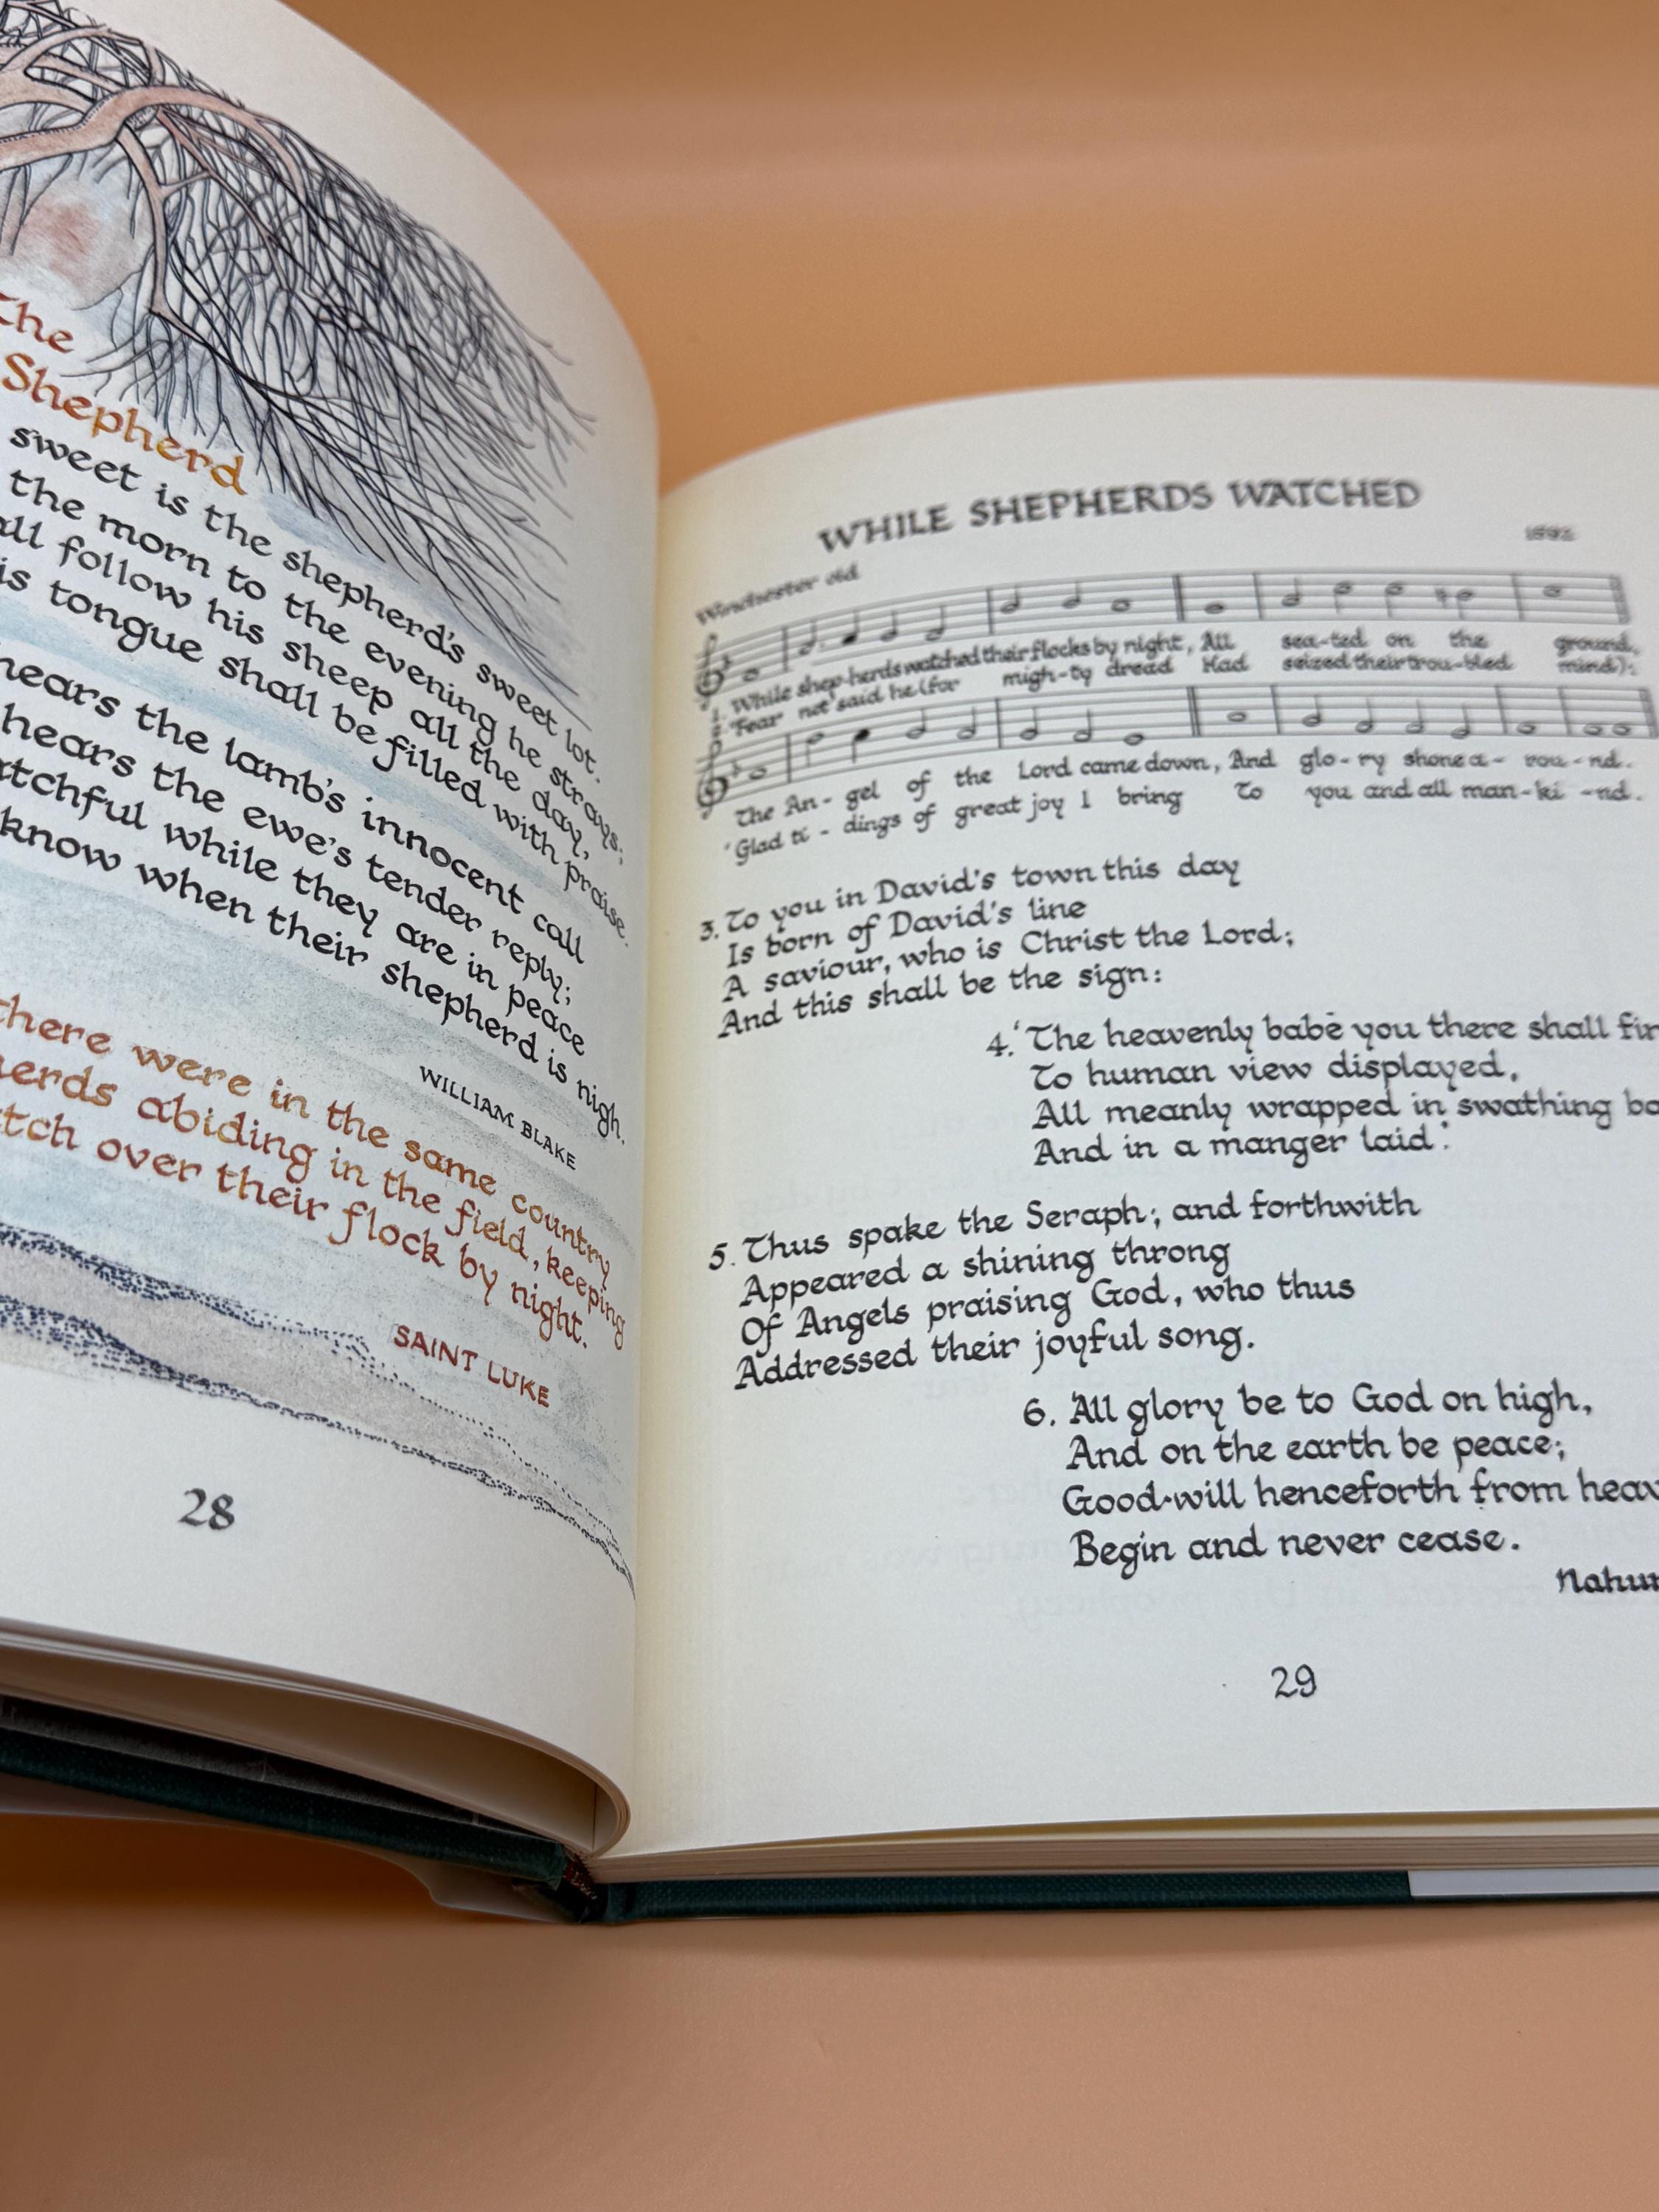 The
Shepherd
sweet is the shepherd's sweet lot.
the morn to the evening he strays;
all follow his sheep all the day,
is tongue shall be filled with praise.
hears the lamb's innocent call
hears the ewe's tender reply;
atchful while they are in peace
know when their shepherd is nigh.
WILLIAM BLAKE
there were in the same country
herds abiding in the field, keeping
atch over their flock by night.
SAINT LUKE
28
WHILE SHEPHERDS WATCHED
Winchester old
1. While shep-herds watched their flocks by night, All sea-ted on the ground,
2. 'Fear not' said he (for migh-ty dread Had seized their trou-bled mind):
The An-gel of the Lord came down, And glo-ry shone a-rou-nd.
'Glad ti-dings of great joy I bring To you and all man-ki-nd.
3. To you in David's town this day
Is born of David's line
A saviour, who is Christ the Lord;
And this shall be the sign:
4. 'The heavenly babe you there shall fin
To human view displayed,
All meanly wrapped in swathing ba
And in a manger laid.'
5. Thus spake the Seraph; and forthwith
Appeared a shining throng
Of Angels praising God, who thus
Addressed their joyful song.
6. 'All glory be to God on high,
And on the earth be peace;
Good-will henceforth from heav
Begin and never cease.
Nahum
29